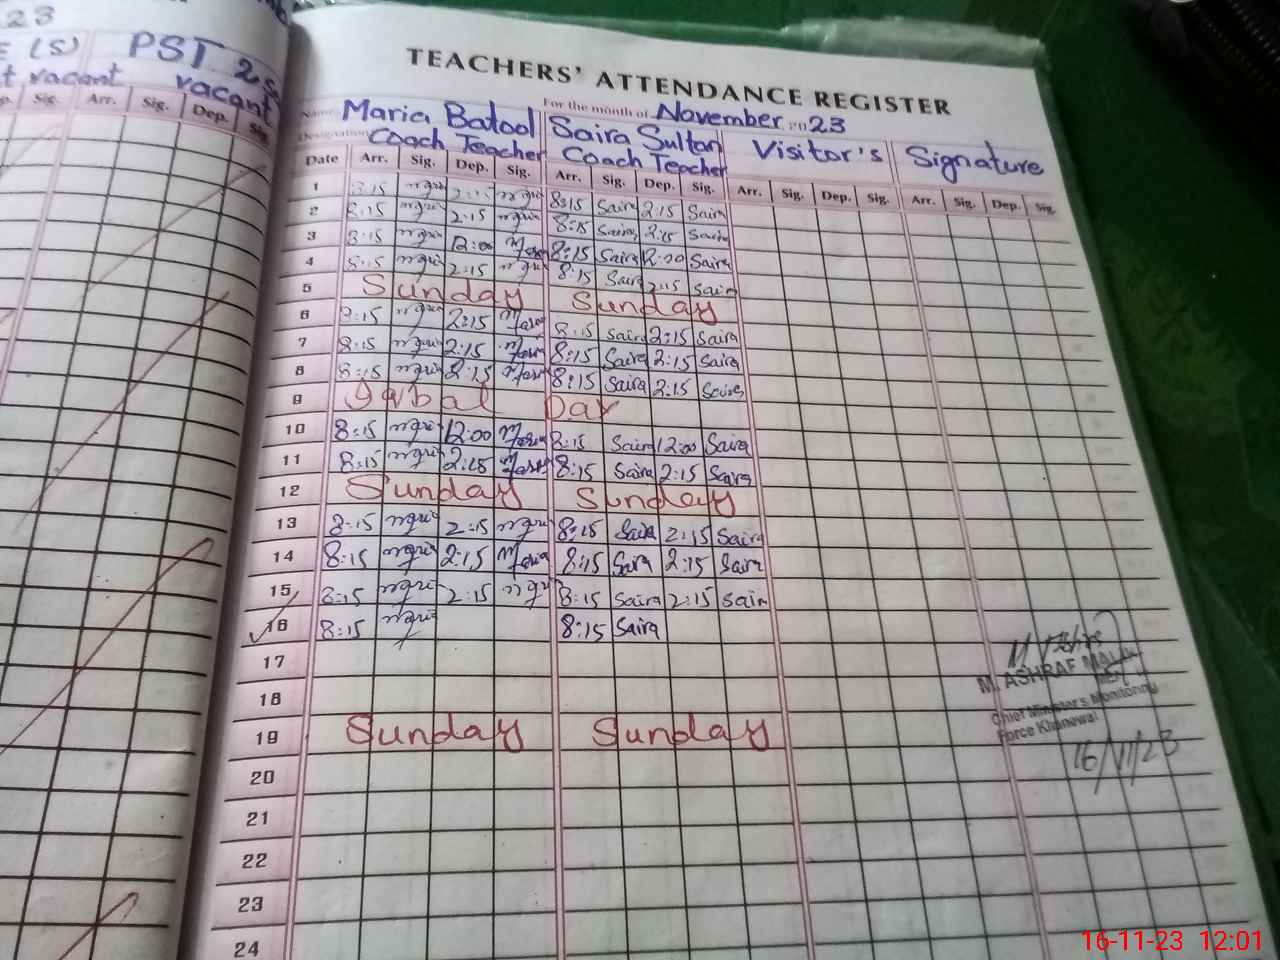 23
(S) PST 2
vacant vacant
Sig. Arr. Sig. Dep. Sig
TEACHERS' ATTENDANCE REGISTER
Name Maria Batool For the month of November 2023
Saira Sultan Visitor's Signature
Designation Coach Teacher Coach Teacher
Date Arr. Sig. Dep. Sig. Arr. Sig. Dep. Sig. Arr. Sig. Dep. Sig. Arr. Sig. Dep. Sig.
1 8:15 8:15 Saira 2:15 Saira
2 8:15 2:15 8:15 Saira 2:15 Saira
3 8:15 12:00 8:15 Saira 12:00 Saira
4 8:15 2:15 8:15 Saira 2:15 Saira
5 Sunday Sunday
6 8:15 2:15 8:15 Saira 2:15 Saira
7 8:15 2:15 8:15 Saira 2:15 Saira
8 8:15 2:15 8:15 Saira 2:15 Saira
9 Iqbal Day
10 8:15 12:00 Maria 8:15 Saira 12:00 Saira
11 8:15 2:15 8:15 Saira 2:15 Saira
12 Sunday Sunday
13 8:15 2:15 8:15 Saira 2:15 Saira
14 8:15 2:15 Maria 8:15 Saira 2:15 Saira
15 8:15 2:15 8:15 Saira 2:15 Saira
16 8:15 8:15 Saira
17
18
19 Sunday Sunday
20
21
22
23
24
M. ASHRAF
Chief Minister's Monitoring
Force Khanewal
16/11/23
16-11-23 12:01